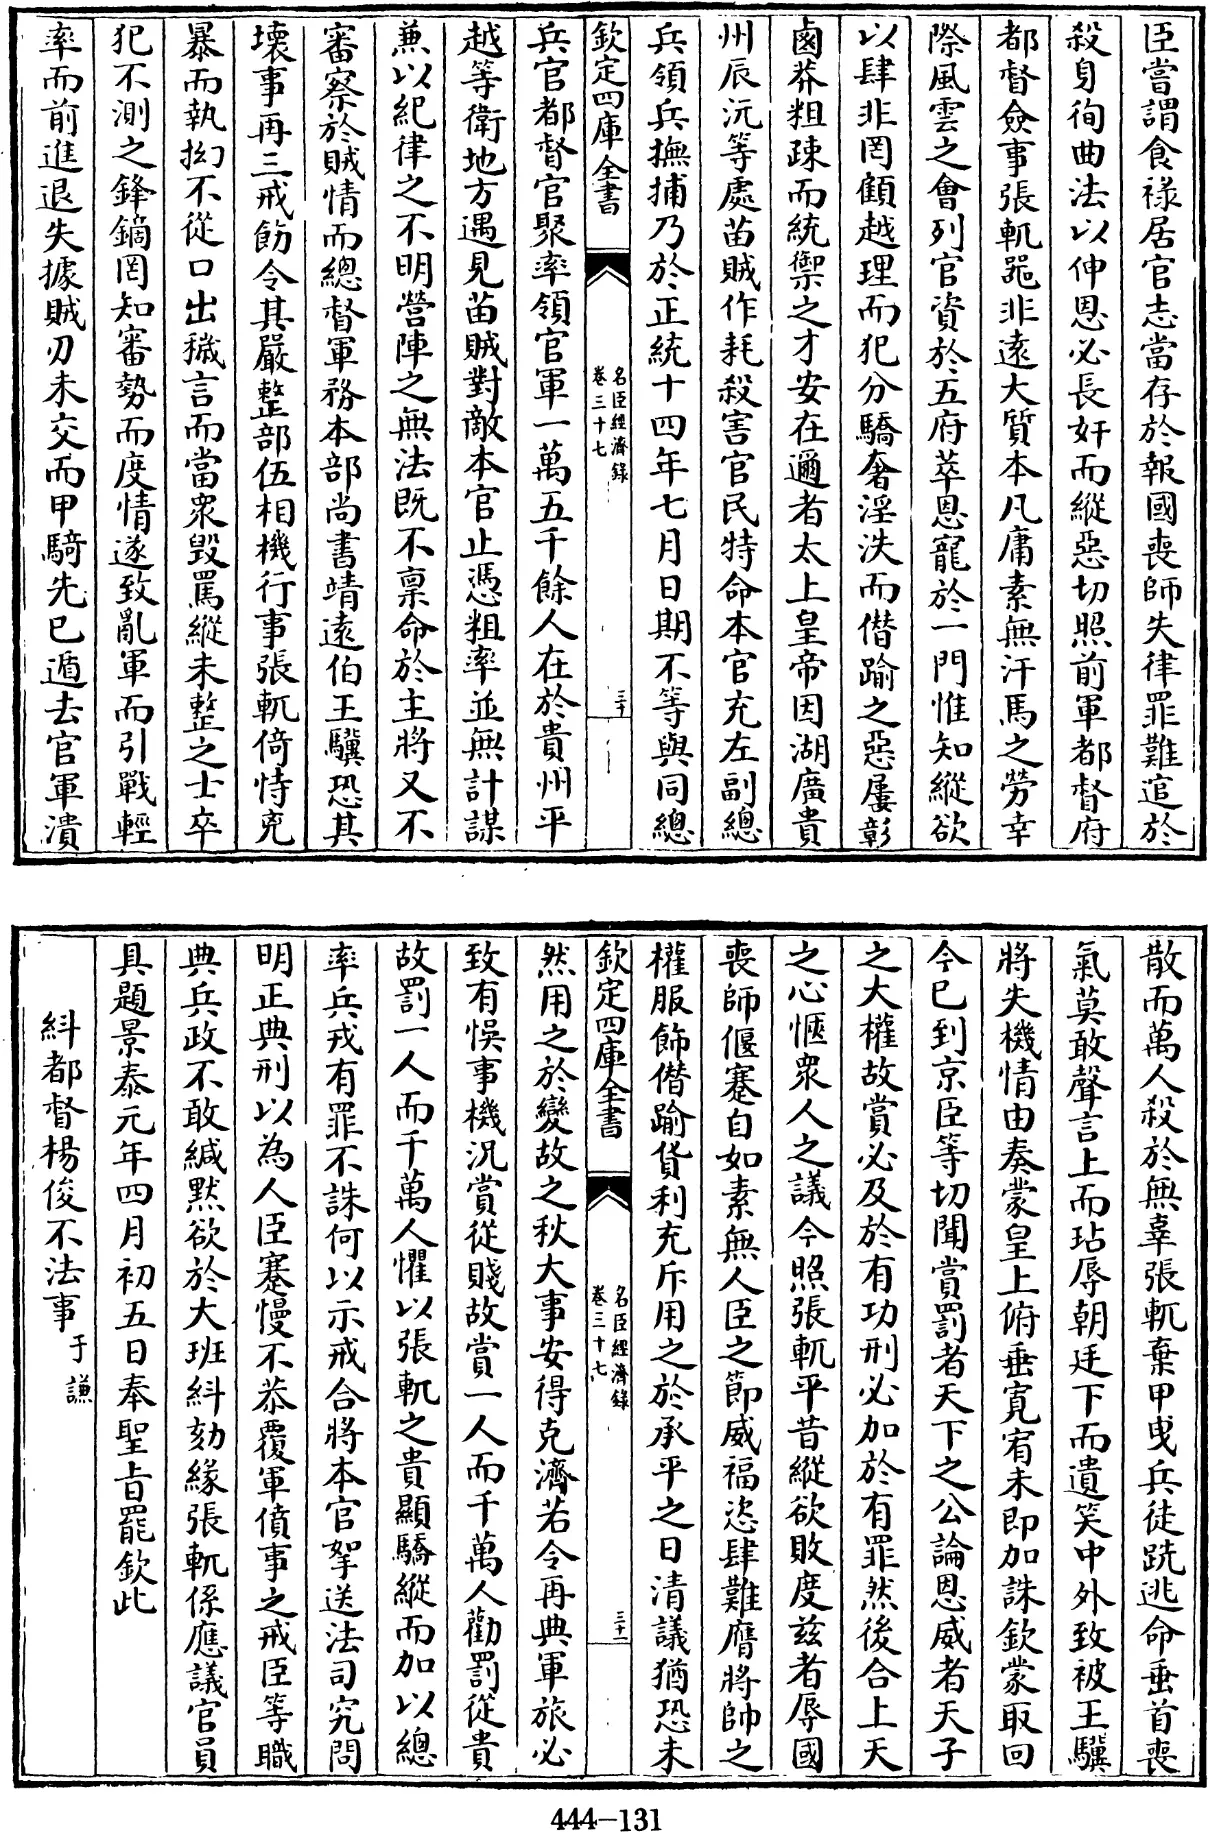 臣嘗謂食祿居官志當存於報國喪師失律罪難逭於
殺身徇曲法以伸恩必長奸而縱惡切照前軍都督府
都督僉事張軏噐非遠大質本凡庸素無汗馬之勞幸
際風雲之會列官資於五府萃恩寵於一門惟知縱欲
以肆非罔顧越理而犯分驕奢淫泆而僭踰之惡屢彰
鹵莽粗疎而統禦之才安在邇者太上皇帝因湖廣貴
州辰沅等處苗賊作耗殺害官民特命本官充左副總
兵領兵撫捕乃於正統十四年七月日期不等與同總
欽定四庫全書
名臣經濟錄
卷三十七
三十
兵官都督官聚率領官軍一萬五千餘人在於貴州平
越等衛地方遇見苗賊對敵本官止憑粗率並無計謀
兼以紀律之不明營陣之無法既不禀命於主將又不
審察於賊情而總督軍務本部尚書靖遠伯王驥恐其
壞事再三戒飭令其嚴整部伍相機行事張軏倚恃兇
暴而執拗不從口出穢言而當衆毁罵縱未整之士卒
犯不測之鋒鏑罔知審勢而度情遂致亂軍而引戰輕
率而前進退失據賊刃未交而甲騎先已遁去官軍潰
散而萬人殺於無辜張軏棄甲曵兵徒跣逃命垂首喪
氣莫敢聲言上而玷辱朝廷下而遺笑中外致被王驥
將失機情由奏蒙皇上俯垂寛宥未即加誅欽蒙取回
今已到京臣等切聞賞罰者天下之公論恩威者天子
之大權故賞必及於有功刑必加於有罪然後合上天
之心愜衆人之議今照張軏平昔縱欲敗度兹者辱國
喪師偃蹇自如素無人臣之節威福恣肆難膺將帥之
權服飾僭踰貨利充斥用之於承平之日清議猶恐未
欽定四庫全書
名臣經濟錄
卷三十七
三十一
然用之於變故之秋大事安得克濟若令再典軍旅必
致有悞事機況賞從賤故賞一人而千萬人勸罰從貴
故罰一人而千萬人懼以張軏之貴顯驕縱而加以總
率兵戎有罪不誅何以示戒合將本官拏送法司究問
明正典刑以為人臣蹇慢不恭覆軍僨事之戒臣等職
典兵政不敢緘默欲於大班糾劾緣張軏係應議官員
具題景泰元年四月初五日奉聖旨罷欽此
糾都督楊俊不法事 于謙
444-131